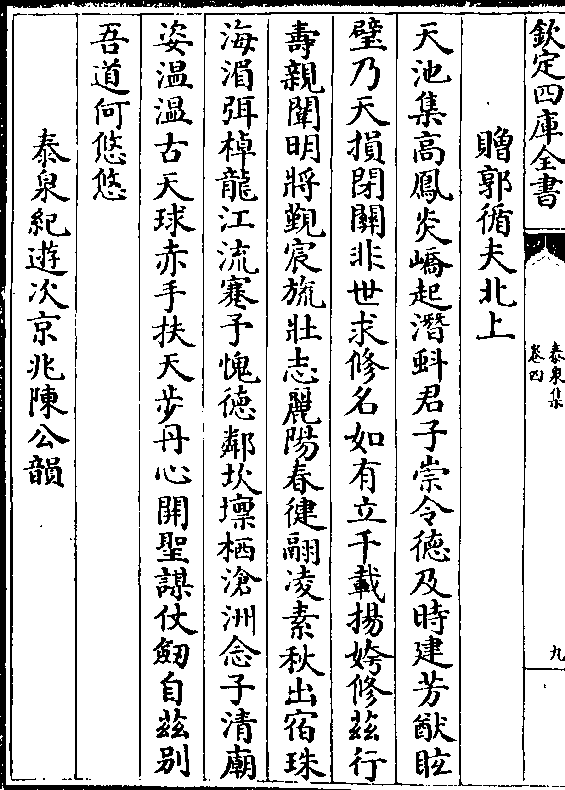 欽定四庫全書
泰泉集
卷四
九
贈郭循夫北上
天池集高鳳炎嶠起潛虯君子崇令德及時建芳猷眩
璧乃天損閉關非世求修名如有立千載揚姱修茲行
壽親闈明將覲宸旒壯志麗陽春健翮凌素秋出宿珠
海湄弭棹龍江流蹇予愧德鄰坎壈栖滄洲念子清廟
姿溫溫古天球赤手扶天步丹心開聖謀仗劒自茲別
吾道何悠悠
泰泉紀遊次京兆陳公韻